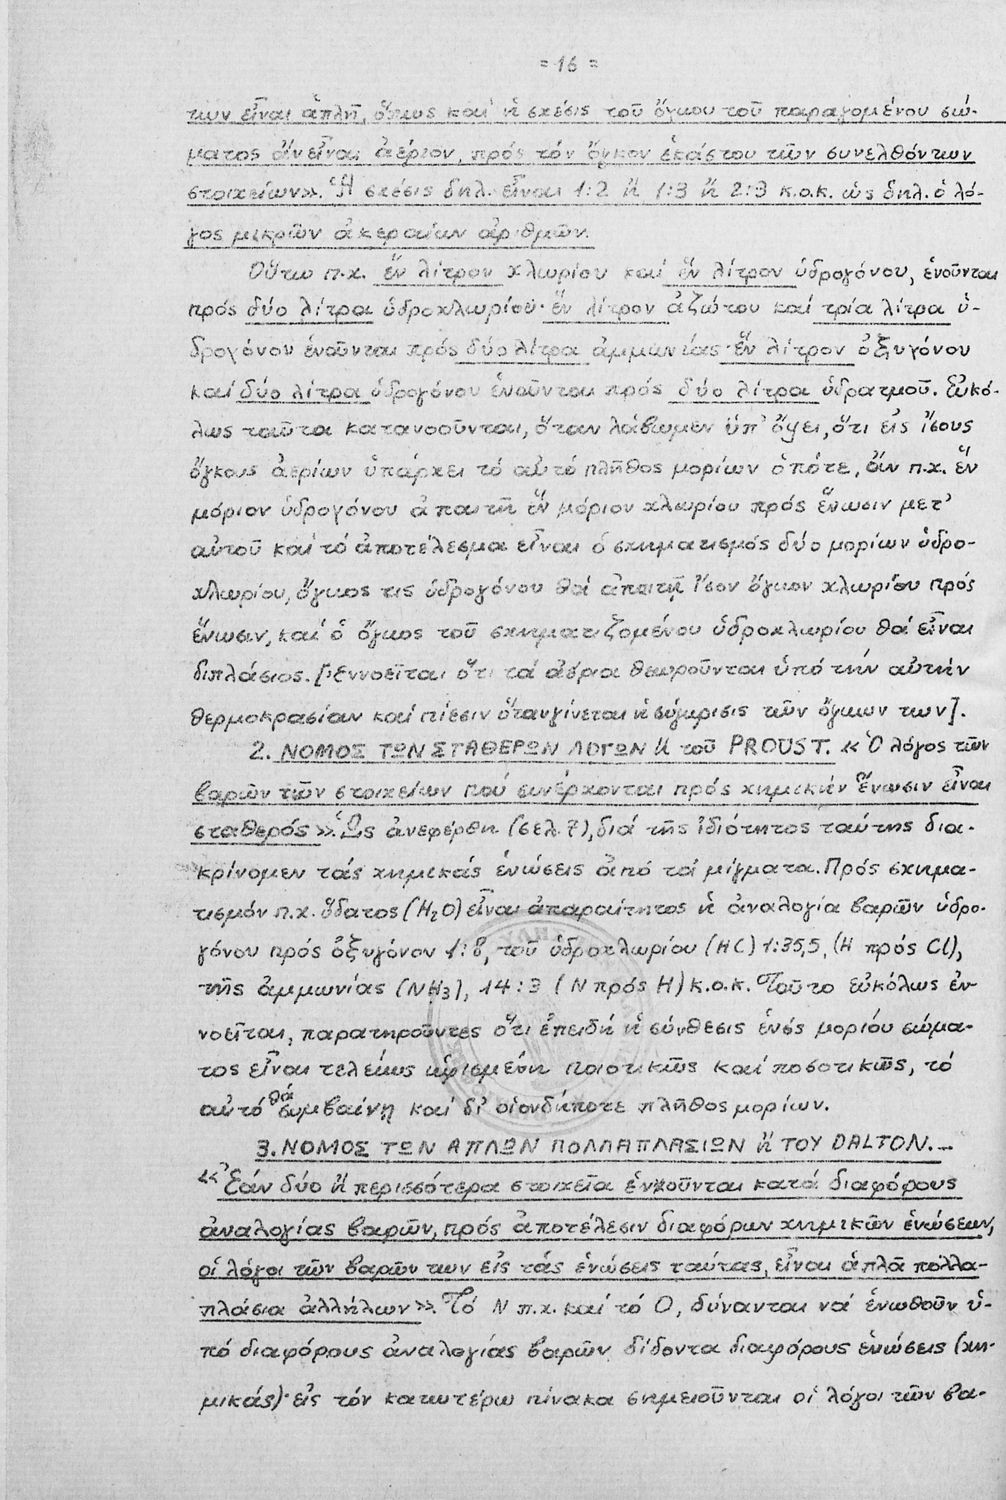 = 16 =
των εἶναι ἁπλῆ, ὅπως καί ἡ σχέσις τοῦ ὄγκου τοῦ παραγομένου σώ-
ματος ἄν εἶναι ἀέριον, πρός τόν ὄγκον ἑκάστου τῶν συνελθόντων
στοιχείων». Ἡ σχέσις δηλ. εἶναι 1:2 ἤ 1:3 ἤ 2:3 κ.ο.κ. ὡς δηλ. ὁ λό-
γος μικρῶν ἀκεραίων ἀριθμῶν.
Οὕτω π.χ. ἕν λίτρον χλωρίου καί ἕν λίτρον ὑδρογόνου, ἑνοῦνται
πρός δύο λίτρα ὑδροχλωρίου· ἕν λίτρον ἀζώτου καί τρία λίτρα ὑ-
δρογόνου ἑνοῦνται πρός δύο λίτρα ἀμμωνίας· ἕν λίτρον ὀξυγόνου
καί δύο λίτρα ὑδρογόνου ἑνοῦνται πρός δύο λίτρα ὑδρατμοῦ. Εὐκό-
λως ταῦτα κατανοοῦνται, ὅταν λάβωμεν ὑπ' ὄψει, ὅτι εἰς ἴσους
ὄγκους ἀερίων ὑπάρχει τό αὐτό πλῆθος μορίων ὁπότε, ἄν π.χ. ἕν
μόριον ὑδρογόνου ἀπαιτῆ ἕν μόριον χλωρίου πρός ἕνωσιν μετ'
αὐτοῦ καί τό ἀποτέλεσμα εἶναι ὁ σχηματισμός δύο μορίων ὑδρο-
χλωρίου, ὄγκος τις ὑδρογόνου θά ἀπαιτῇ ἴσον ὄγκον χλωρίου πρός
ἕνωσιν, καί ὁ ὄγκος τοῦ σχηματιζομένου ὑδροχλωρίου θά εἶναι
διπλάσιος. [Ἐννοεῖται ὅτι τά ἀέρια θεωροῦνται ὑπό τήν αὐτήν
θερμοκρασίαν καί πίεσιν ὅταν γίνεται ἡ σύγκρισις τῶν ὄγκων των].
2. ΝΟΜΟΣ ΤΩΝ ΣΤΑΘΕΡΩΝ ΛΟΓΩΝ ἤ τοῦ PROUST. « Ὁ λόγος τῶν
βαρῶν τῶν στοιχείων πού συνέρχονται πρός χημικήν ἕνωσιν εἶναι
σταθερός ». Ὡς ἀνεφέρθη (σελ. 7), διά τῆς ἰδιότητος ταύτης δια-
κρίνομεν τάς χημικάς ἑνώσεις ἀπό τά μίγματα. Πρός σχημα-
τισμόν π.χ. ὕδατος (H₂O) εἶναι ἀπαραίτητος ἡ ἀναλογία βαρῶν ὑδρο-
γόνου πρός ὀξυγόνον 1:8, τοῦ ὑδροχλωρίου (HC) 1:35,5, (H πρός Cl),
τῆς ἀμμωνίας (NH₃), 14:3 (N πρός H) κ.ο.κ. Τοῦτο εὐκόλως ἐν-
νοεῖται, παρατηροῦντες ὅτι ἐπειδή ἡ σύνθεσις ἑνός μορίου σώμα-
τος εἶναι τελείως ὡρισμένη ποιοτικῶς καί ποσοτικῶς, τό
αὐτό θά συμβαίνῃ καί δι' οἱονδήποτε πλῆθος μορίων.
3. ΝΟΜΟΣ ΤΩΝ ΑΠΛΩΝ ΠΟΛΛΑΠΛΑΣΙΩΝ ἤ ΤΟΥ DALTON.—
« Ἐάν δύο ἤ περισσότερα στοιχεῖα ἑνοῦνται κατά διαφόρους
ἀναλογίας βαρῶν, πρός ἀποτέλεσιν διαφόρων χημικῶν ἑνώσεων,
οἱ λόγοι τῶν βαρῶν των εἰς τάς ἑνώσεις ταύτας, εἶναι ἁπλᾶ πολλα-
πλάσια ἀλλήλων». Τό N π.χ. καί τό O, δύνανται νά ἑνωθοῦν ὑ-
πό διαφόρους ἀναλογίας βαρῶν, δίδοντα διαφόρους ἑνώσεις (χη-
μικάς)· εἰς τόν κατωτέρω πίνακα σημειοῦνται οἱ λόγοι τῶν βα-